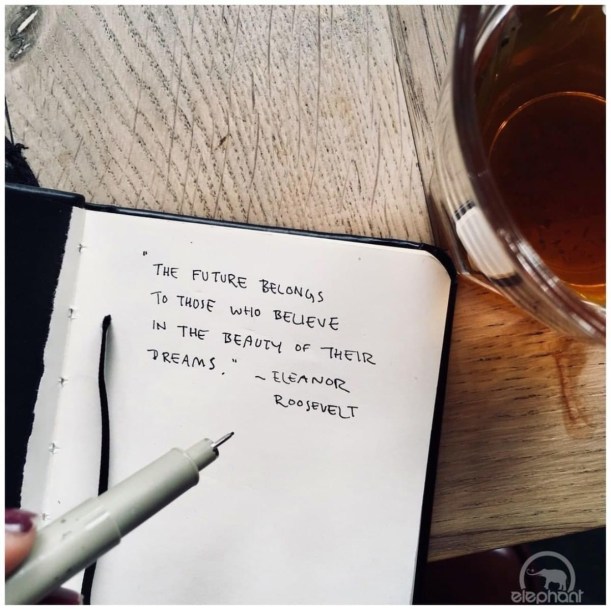 "THE FUTURE BELONGS
TO THOSE WHO BELIEVE
IN THE BEAUTY OF THEIR
DREAMS." ~ ELEANOR
ROOSEVELT
elephant